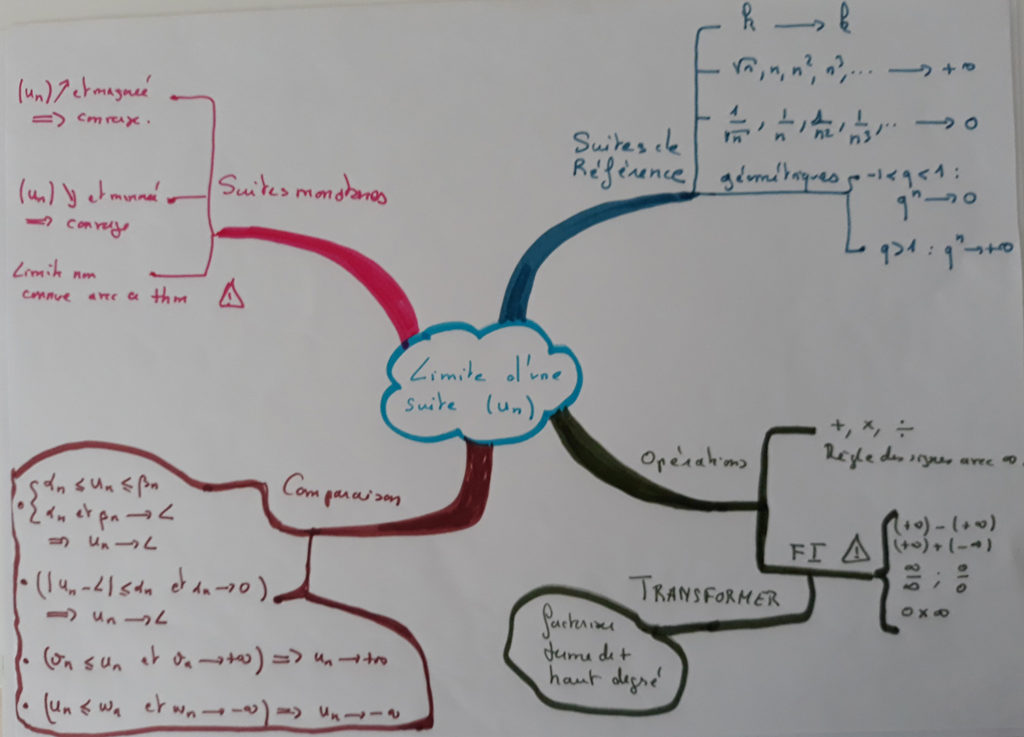 Limite d'une
suite (un)
Suites monotones
(un) ↗ et majorée
=> converge.
(un) ↘ et minorée
=> converge
Limite non
connue avec ce thm ⚠
Suites de
Référence
k → k
√n, n, n², n³, ... → +∞
1/√n, 1/n, 1/n2, 1/n3, .. → 0
géométriques
-1 < q < 1 :
qⁿ → 0
q > 1 : qⁿ → +∞
Opérations
+, ×, ÷
Règle des signes avec ∞.
FI ⚠
(+∞) - (+∞)
(+∞) + (-∞)
∞/∞ ; 0/0
0 × ∞
TRANSFORMER
factoriser
terme de +
haut degré
Comparaison
• { αn ≤ un ≤ βn
{ αn et βn → L
=> un → L
• (|un - L| ≤ αn et αn → 0)
=> un → L
• (vn ≤ un et vn → +∞) => un → +∞
• (un ≤ wn et wn → -∞) => un → -∞